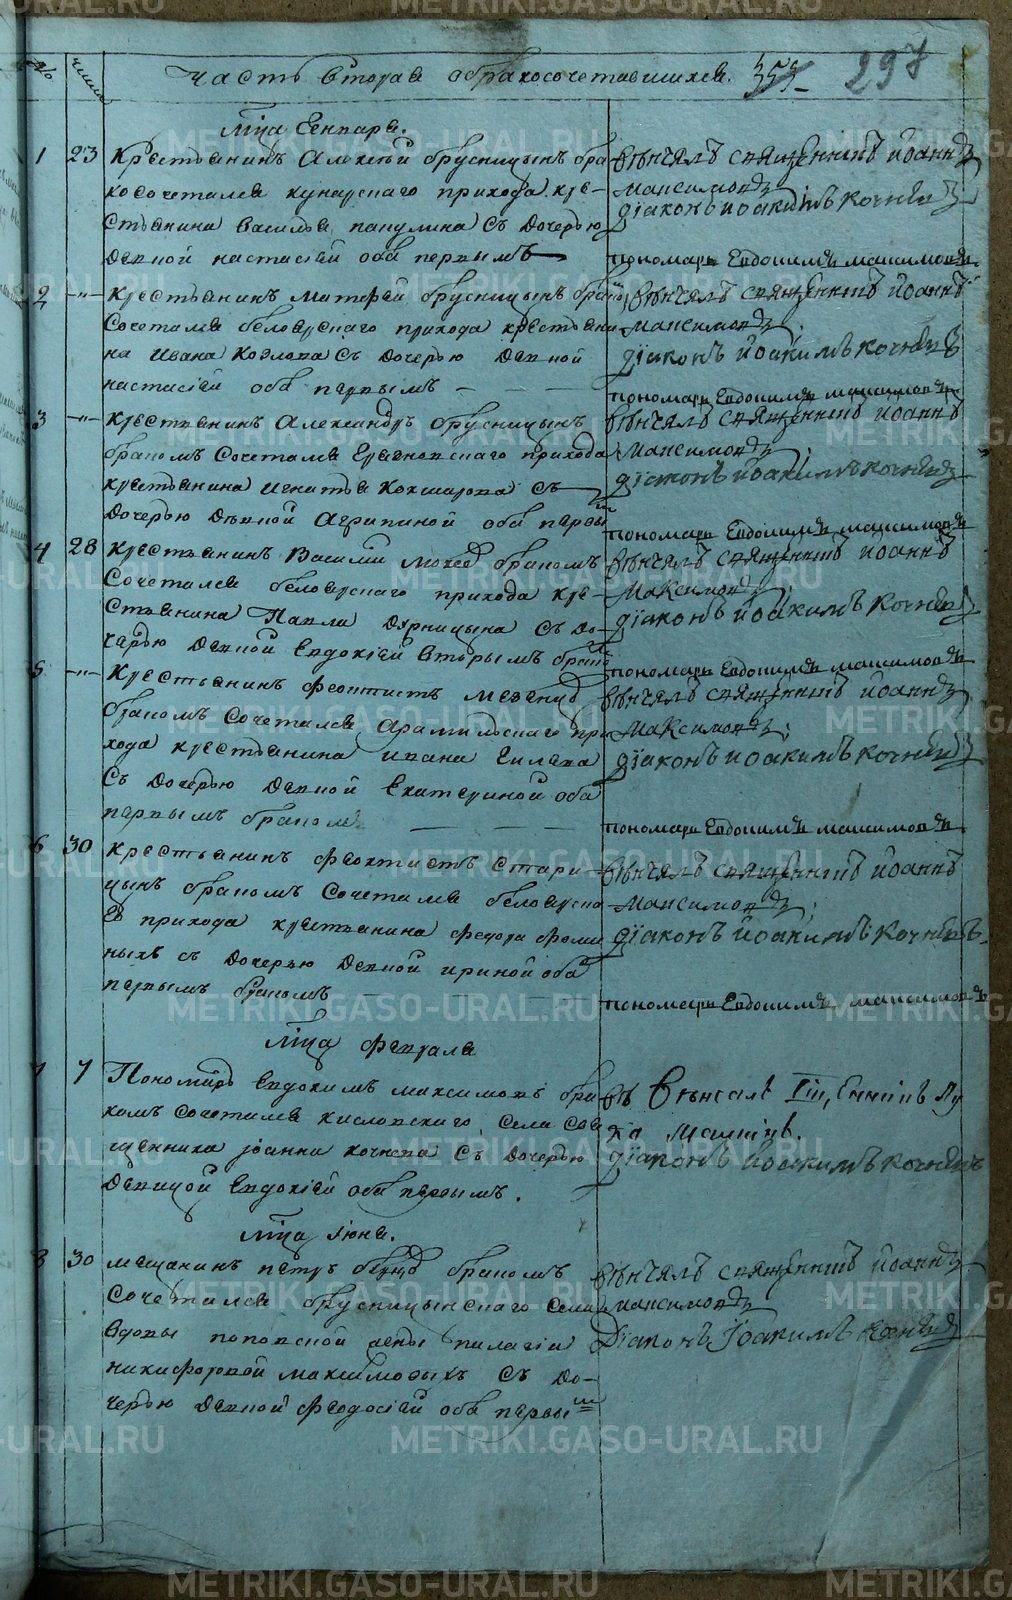 №
число
Часть вторая о бракосочетавшихся.
297
Мца Генваря.
1 23 Крестьянинъ Алексѣй Брусницынъ бра
косочетался кунарскаго прихода кре-
стьянина Василья панулина Съ Дочерью
Девкой настасіей оба первымъ
вѣнчалъ священникъ Иоаннъ
Максимовъ
діаконъ Иоакимъ Кочневъ
пономарь Евдокимъ Максимовъ
2 -"- Крестьянинъ Матфей Брусницынъ бракомъ
Сочетался белоярскаго прихода крестьяни
на Ивана Козлова Съ Дочерью Девкой
настасіей оба первымъ
вѣнчалъ священникъ Иоаннъ
Максимовъ;
діаконъ Иоакимъ Кочневъ
пономарь Евдокимъ Максимовъ
3 -"- Крестьянинъ Александръ Брусницынъ
бракомъ Сочетался прихода
крестьянина Игнатья Кокшарова Съ
Дочерью Девкой Агрипиной оба первы
вѣнчалъ священникъ Иоаннъ
Максимовъ;
діаконъ Иоакимъ Кочневъ
пономарь Евдокимъ Максимовъ
4 28 Крестьянинъ Василій бракомъ
Сочетался белоярскаго прихода кре-
стьянина Павла Съ До-
черью Девкой Евдокіей вторымъ брако
вѣнчалъ священникъ Иоаннъ
Максимовъ;
діаконъ Иоакимъ Кочневъ
пономарь Евдокимъ Максимовъ
5 -"- Крестьянинъ Феоктистъ
бракомъ Сочетался Арамильскаго при
хода крестьянина Ивана Гилева
Съ Дочерью Девкой Екатериной оба
первымъ бракомъ
вѣнчалъ священникъ Иоаннъ
Максимовъ;
діаконъ Иоакимъ Кочневъ
пономарь Евдокимъ Максимовъ
6 30 Крестьянинъ Феоктистъ Стари-
цынъ бракомъ Сочетался белоярска
го прихода крестьянина Федора Фоми
ныхъ съ Дочерью Девкой Ириной оба
первымъ бракомъ
вѣнчалъ священникъ Иоаннъ
Максимовъ;
діаконъ Иоакимъ Кочневъ
пономарь Евдокимъ Максимовъ
Мца Февраля
7 7 Пономарь Евдокимъ Максимовъ бра
комъ Сочетался кисловскаго Села Свя
щенника Іоанна Кочнева Съ Дочерью
Девицой Евдокіей оба первымъ.
діаконъ Иоакимъ Кочневъ
Мца Іюня.
8 30 Мещанинъ петръ бракомъ
Сочетался Брусницынскаго Села
вдовы поповской жены пилагіи
никифоровой Максимовыхъ Съ До-
черью Девкой Феодосіей оба первы
вѣнчалъ священникъ Иоаннъ
Максимовъ
Діаконъ Іоакимъ Кочневъ
METRIKI.GASO-URAL.RU